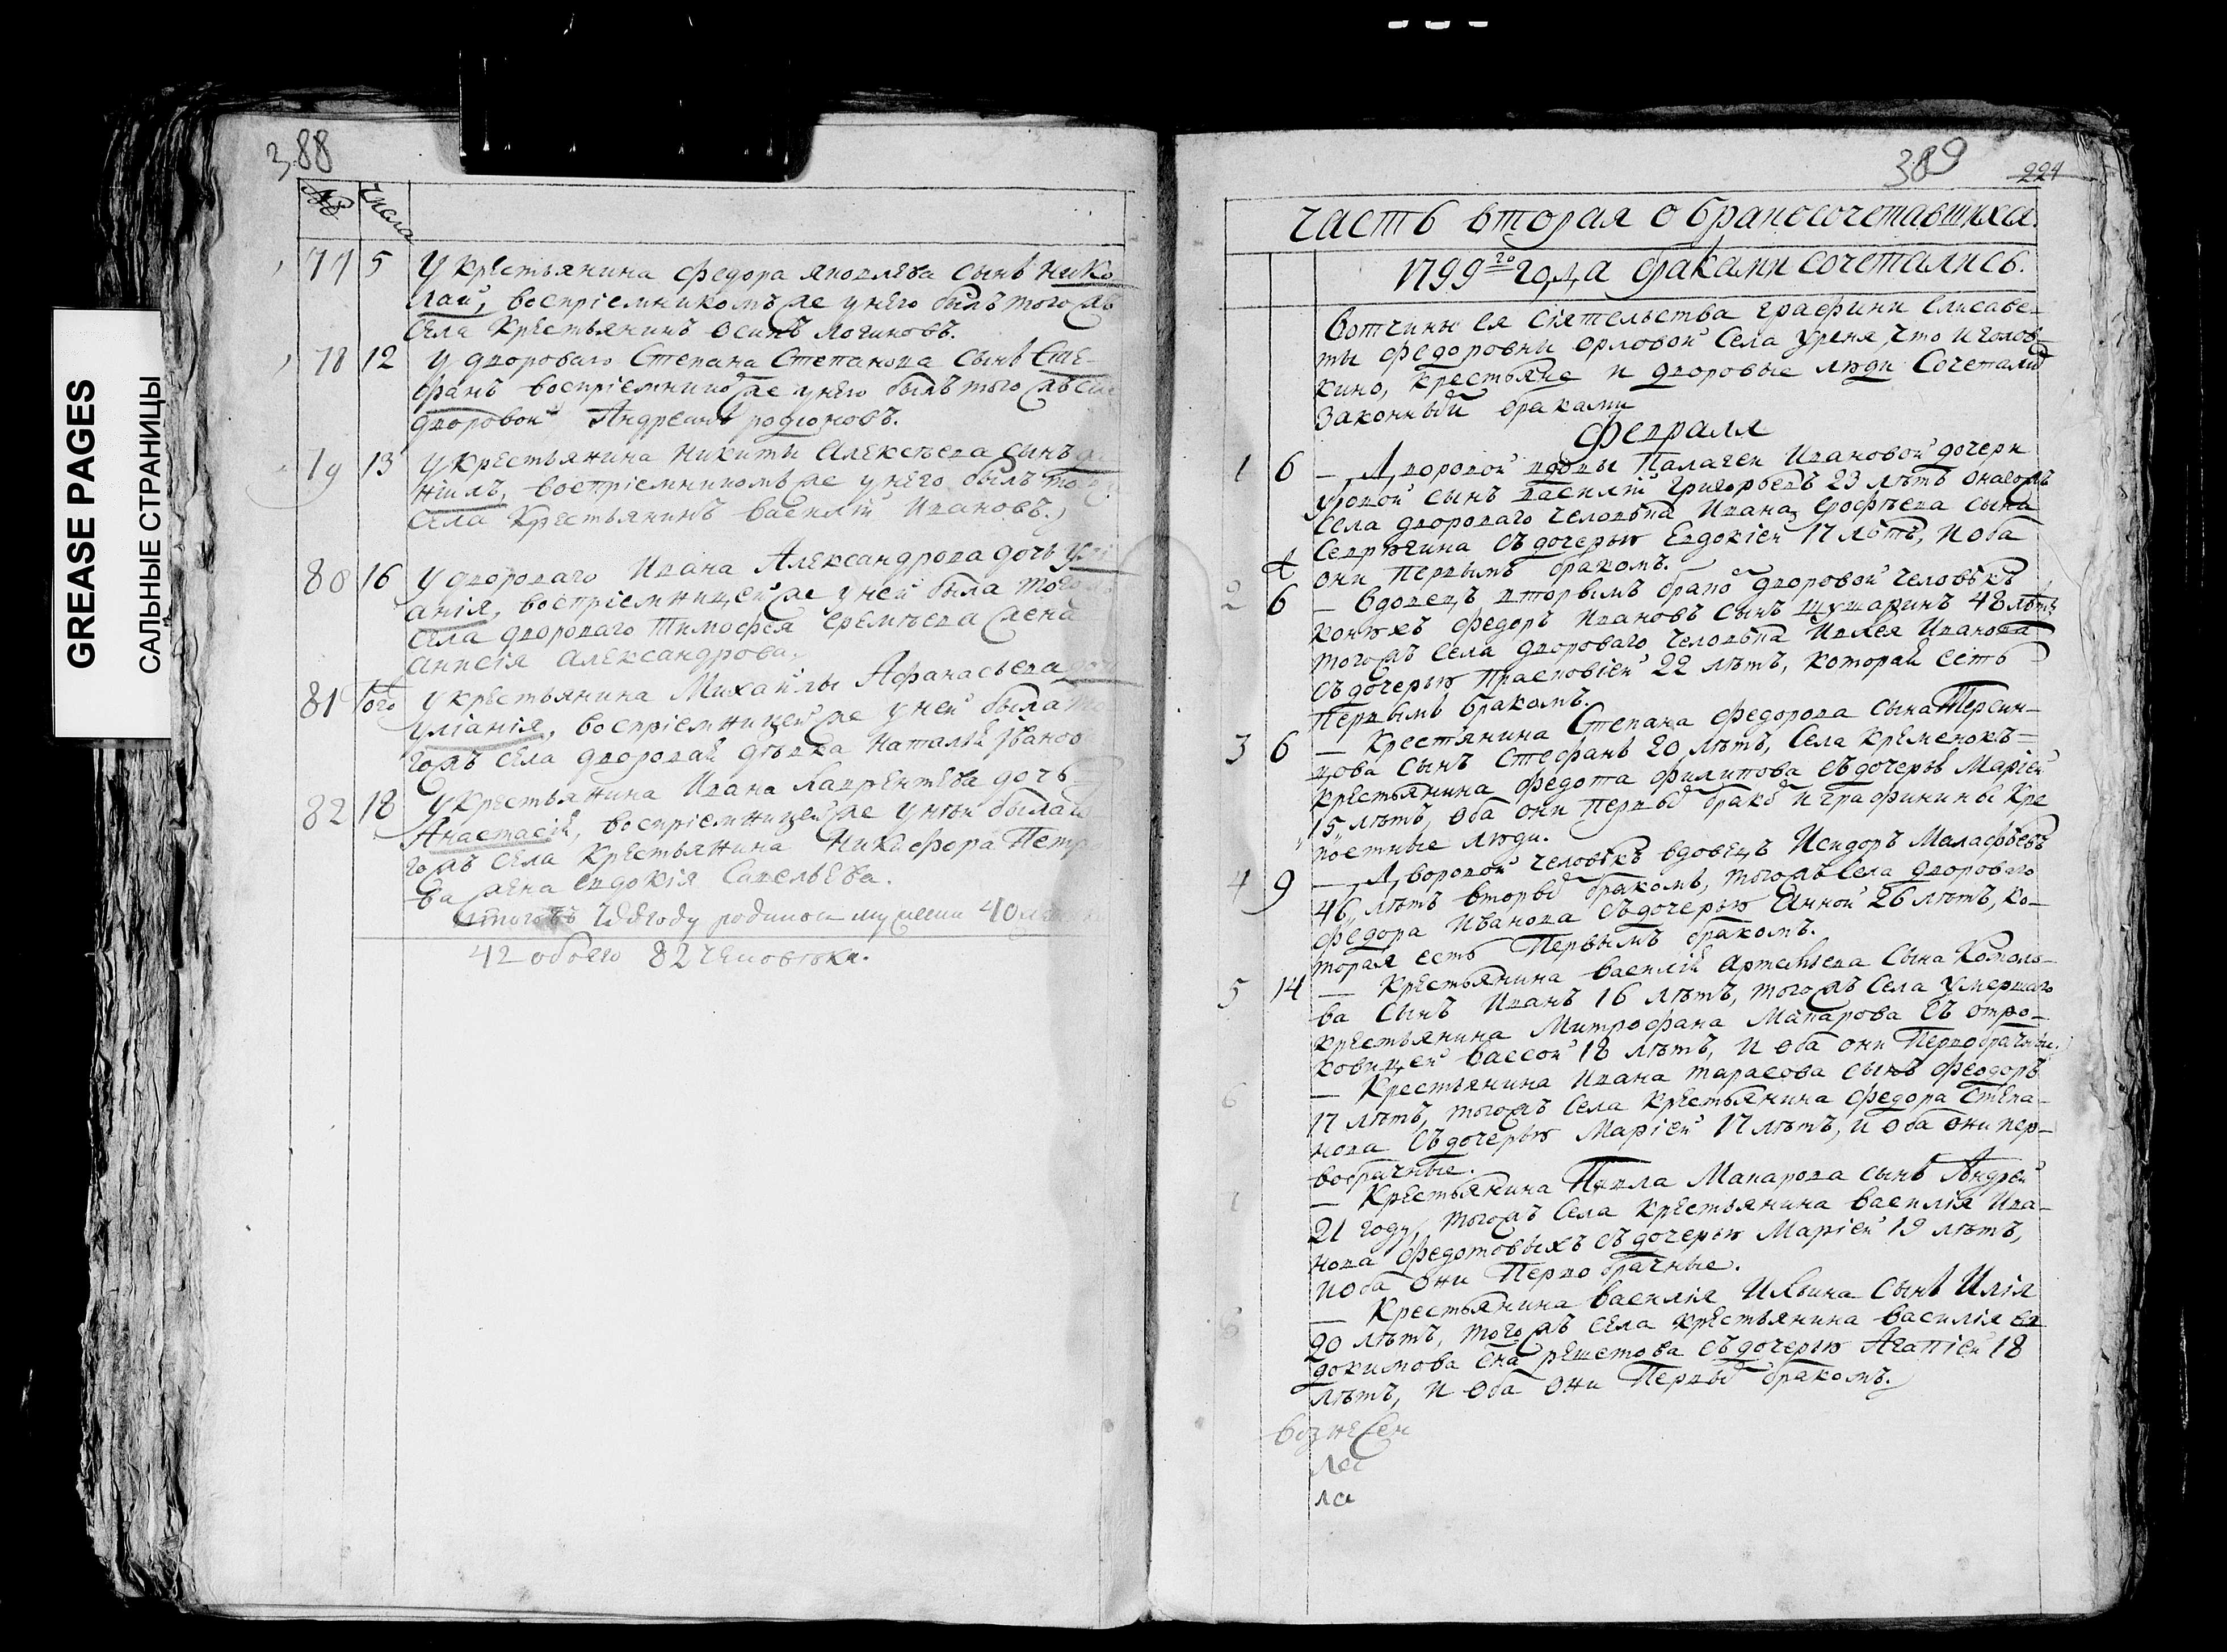 GREASE PAGES
САЛЬНЫЕ СТРАНИЦЫ
388
№ Числа
77 5 У крестьянина Федора Яковлева сынъ Нико
лай, воспріемникомъ же у него былъ того жъ
села крестьянинъ Осипъ Логиновъ.
78 12 У двороваго Степана Степанова сынъ Сте-
фанъ воспріемнико же у него былъ того жъ се
дворовой Андреянъ Родіоновъ.
79 13 У крестьянина Никиты Алексѣева сынъ
ніилъ, воспріемникомъ же у него былъ то
села крестьянинъ Василій Ивановъ.
80 16 У двороваго Ивана Александрова дочь Улі
анія, воспріемницей же у ней была того
села двороваго Тимофея Еремѣева жена
Анисія Александрова.
81 того У крестьянина Михайлы Афанасьева доч
Уліанія, воспріемницей же у ней была то
гожъ села дворовая дѣвка Наталья Іванов
82 18 У крестьянина Ивана Лаврентьева дочь
Анастасія, воспріемницей же у ней была
гожъ села крестьянина Никифора Петр
ва жена Евдокія Савельева.
году родилось мужеска 40
42 обоего 82 человѣка.
389
224
Часть вторая о бракосочетавшихся.
1799 го года браками сочетались.
Вотчины ея сіятельства графини Елисаве-
ты Федоровны Орловой села Уреня, что и Голов-
кино, крестьяне и дворовые люди сочетались
законный браками
Февраля
1 6 — Дворовой вдовы Палагеи Ивановой дочери
сынъ Василій Григорьевъ 23 лѣтъ онагожъ
села двороваго человѣка Ивана Ерофѣева сына
съ дочерью Евдокіей 17 лѣтъ, и оба
они первымъ бракомъ.
2 6 — Вдовецъ вторымъ брако дворовой человѣкъ
конюхъ Федоръ Ивановъ сынъ 48 лѣтъ
тогожъ села двороваго человѣка Иванова
съ дочерью Прасковіей 22 лѣтъ, которая есть
первымъ бракомъ.
3 6 — Крестьянина Степана Федорова сына Терсин-
цова сынъ Стефанъ 20 лѣтъ, села Кременокъ-
крестьянина Федота Филипова съ дочерью Маріей
15, лѣтъ, оба они первы брако и графинины кре
постные люди.
4 9 — Дворовой человѣкъ вдовецъ Исидоръ Малафѣевъ
46, лѣтъ вторы бракомъ, тогожъ села двороваго
Федора Иванова съ дочерью Анной 26 лѣтъ, ко-
торая есть первымъ бракомъ.
5 14 — Крестьянина Василія Артемьева сына Комоло-
ва сынъ Иванъ 16 лѣтъ, тогожъ села умершаго
крестьянина Митрофана Макарова съ отро-
ковицей Вассой 18 лѣтъ, и оба они первобрачныи.
6 — Крестьянина Ивана Тарасова сынъ Феодоръ
17 лѣтъ, тогожъ села крестьянина Федора Степа-
нова съ дочерью Маріей 17 лѣтъ, и оба они пер-
вобрачные.
7 — Крестьянина Павла Макарова сынъ Андрей
21 году, тогожъ села крестьянина Василія Ива-
нова Федотовыхъ съ дочерью Маріей 19 лѣтъ,
и оба они первобрачные.
— Крестьянина Василія Ильина сынъ Илія
20 лѣтъ, тогожъ села крестьянина Василія Ев
докимова сна Решетова съ дочерью Агапіей 18
лѣтъ, и оба они первы бракомъ.
Вознесен
ла